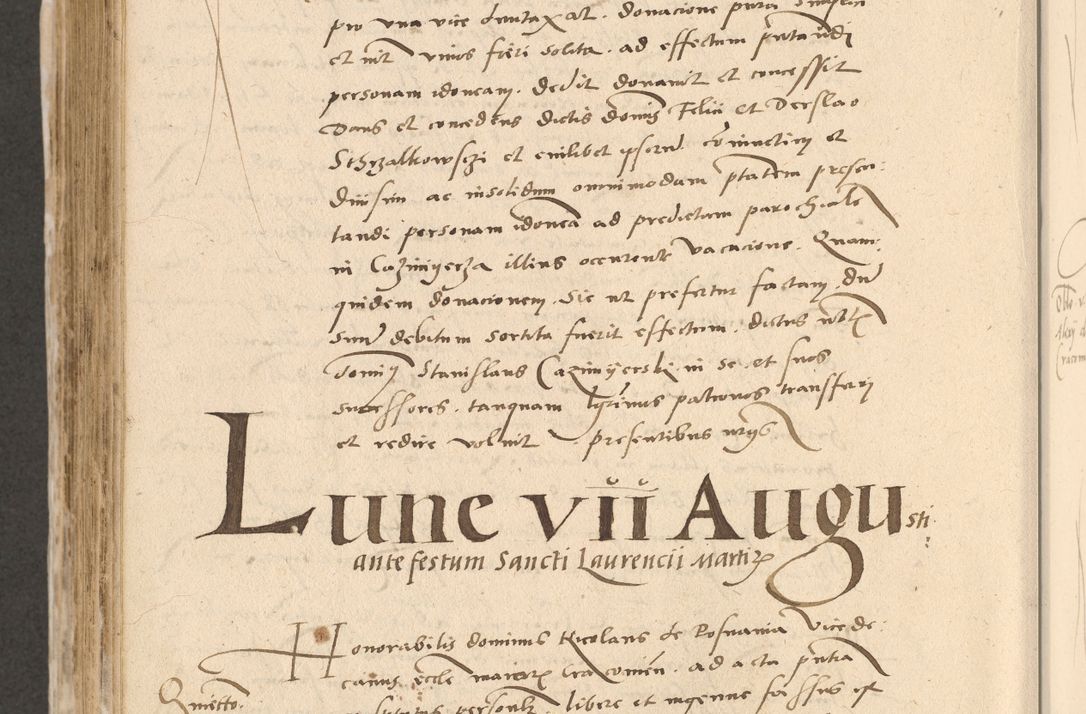 pro una vice duntaxat. donacione pura
et int vivos fieri solita. ad effectum pntandi
personam idoneam. dedit donavit et concessit
Dans et concedens dictis domis Felici et Derslao
Sthrzalkowsczi et cuilibet ipsorum coniunctim et
divisim ac insolidum omnimodam ptatem presen:
tandi personam idonea ad predictam parochiale
in Cazimyerza illius occurrente vacacione. Quam:
quidem donacionem. Sic ut prefertur factam. dum
suum debitum sortita fuerit effectum. dictus
dominus Stanislaus Cazimyerski. in se et suos
successores. tanquam patronos transferri
et redire voluit. presentibus
Lune VII Augu sti
ante festum Sancti Laurencii Martiris
Honorabilis dominus Nicolaus de Posnania Vice de:
canus eccle maioris Cracovien. ad acta pntia
Quietto.
personlr. libere et ingenue fassus est
Cracovien